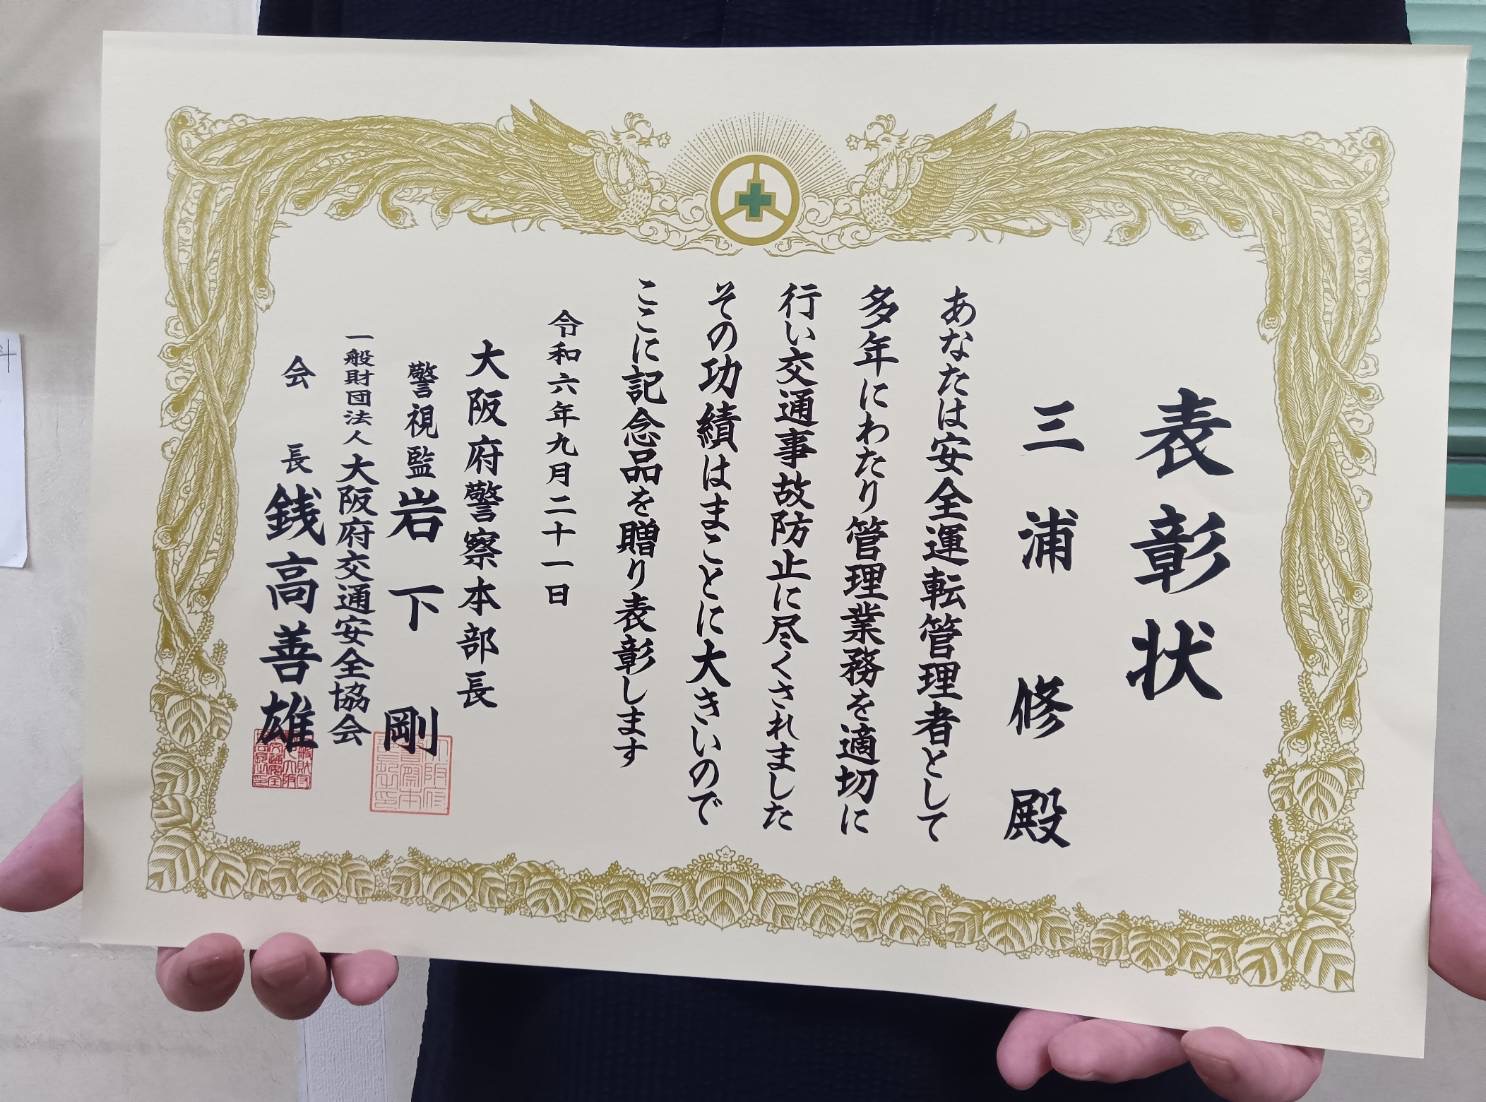 表彰状
三浦修殿
あなたは安全運転管理者として
多年にわたり管理業務を適切に
行い交通事故防止に尽くされました
その功績はまことに大きいので
ここに記念品を贈り表彰します
令和六年九月二十一日
大阪府警察本部長
警視監 岩下剛
一般財団法人大阪府交通安全協会
会長 銭高善雄